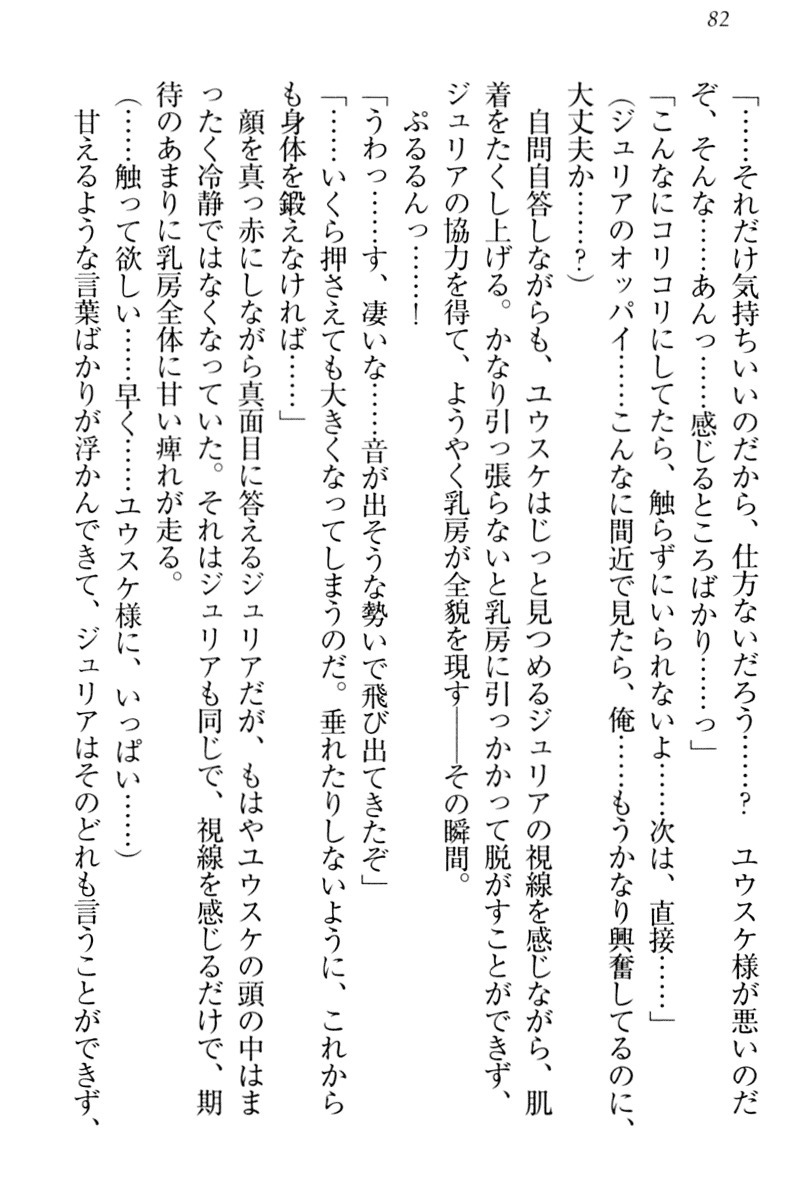 82
「……それだけ気持ちいいのだから、仕方ないだろう……？　ユウスケ様が悪いのだ
ぞ、そんな……あんっ……感じるところばかり……っ」
「こんなにコリコリにしてたら、触らずにいられないよ……次は、直接……」
（ジュリアのオッパイ……こんなに間近で見たら、俺……もうかなり興奮してるのに、
大丈夫か……？）
　自問自答しながらも、ユウスケはじっと見つめるジュリアの視線を感じながら、肌
着をたくし上げる。かなり引っ張らないと乳房に引っかかって脱がすことができず、
ジュリアの協力を得て、ようやく乳房が全貌を現す――その瞬間。
　ぷるるんっ……！
「うわっ……す、凄いな……音が出そうな勢いで飛び出てきたぞ」
「……いくら押さえても大きくなってしまうのだ。垂れたりしないように、これから
も身体を鍛えなければ……」
　顔を真っ赤にしながら真面目に答えるジュリアだが、もはやユウスケの頭の中はま
ったく冷静ではなくなっていた。それはジュリアも同じで、視線を感じるだけで、期
待のあまりに乳房全体に甘い痺れが走る。
（……触って欲しい……早く……ユウスケ様に、いっぱい……）
　甘えるような言葉ばかりが浮かんできて、ジュリアはそのどれも言うことができず、